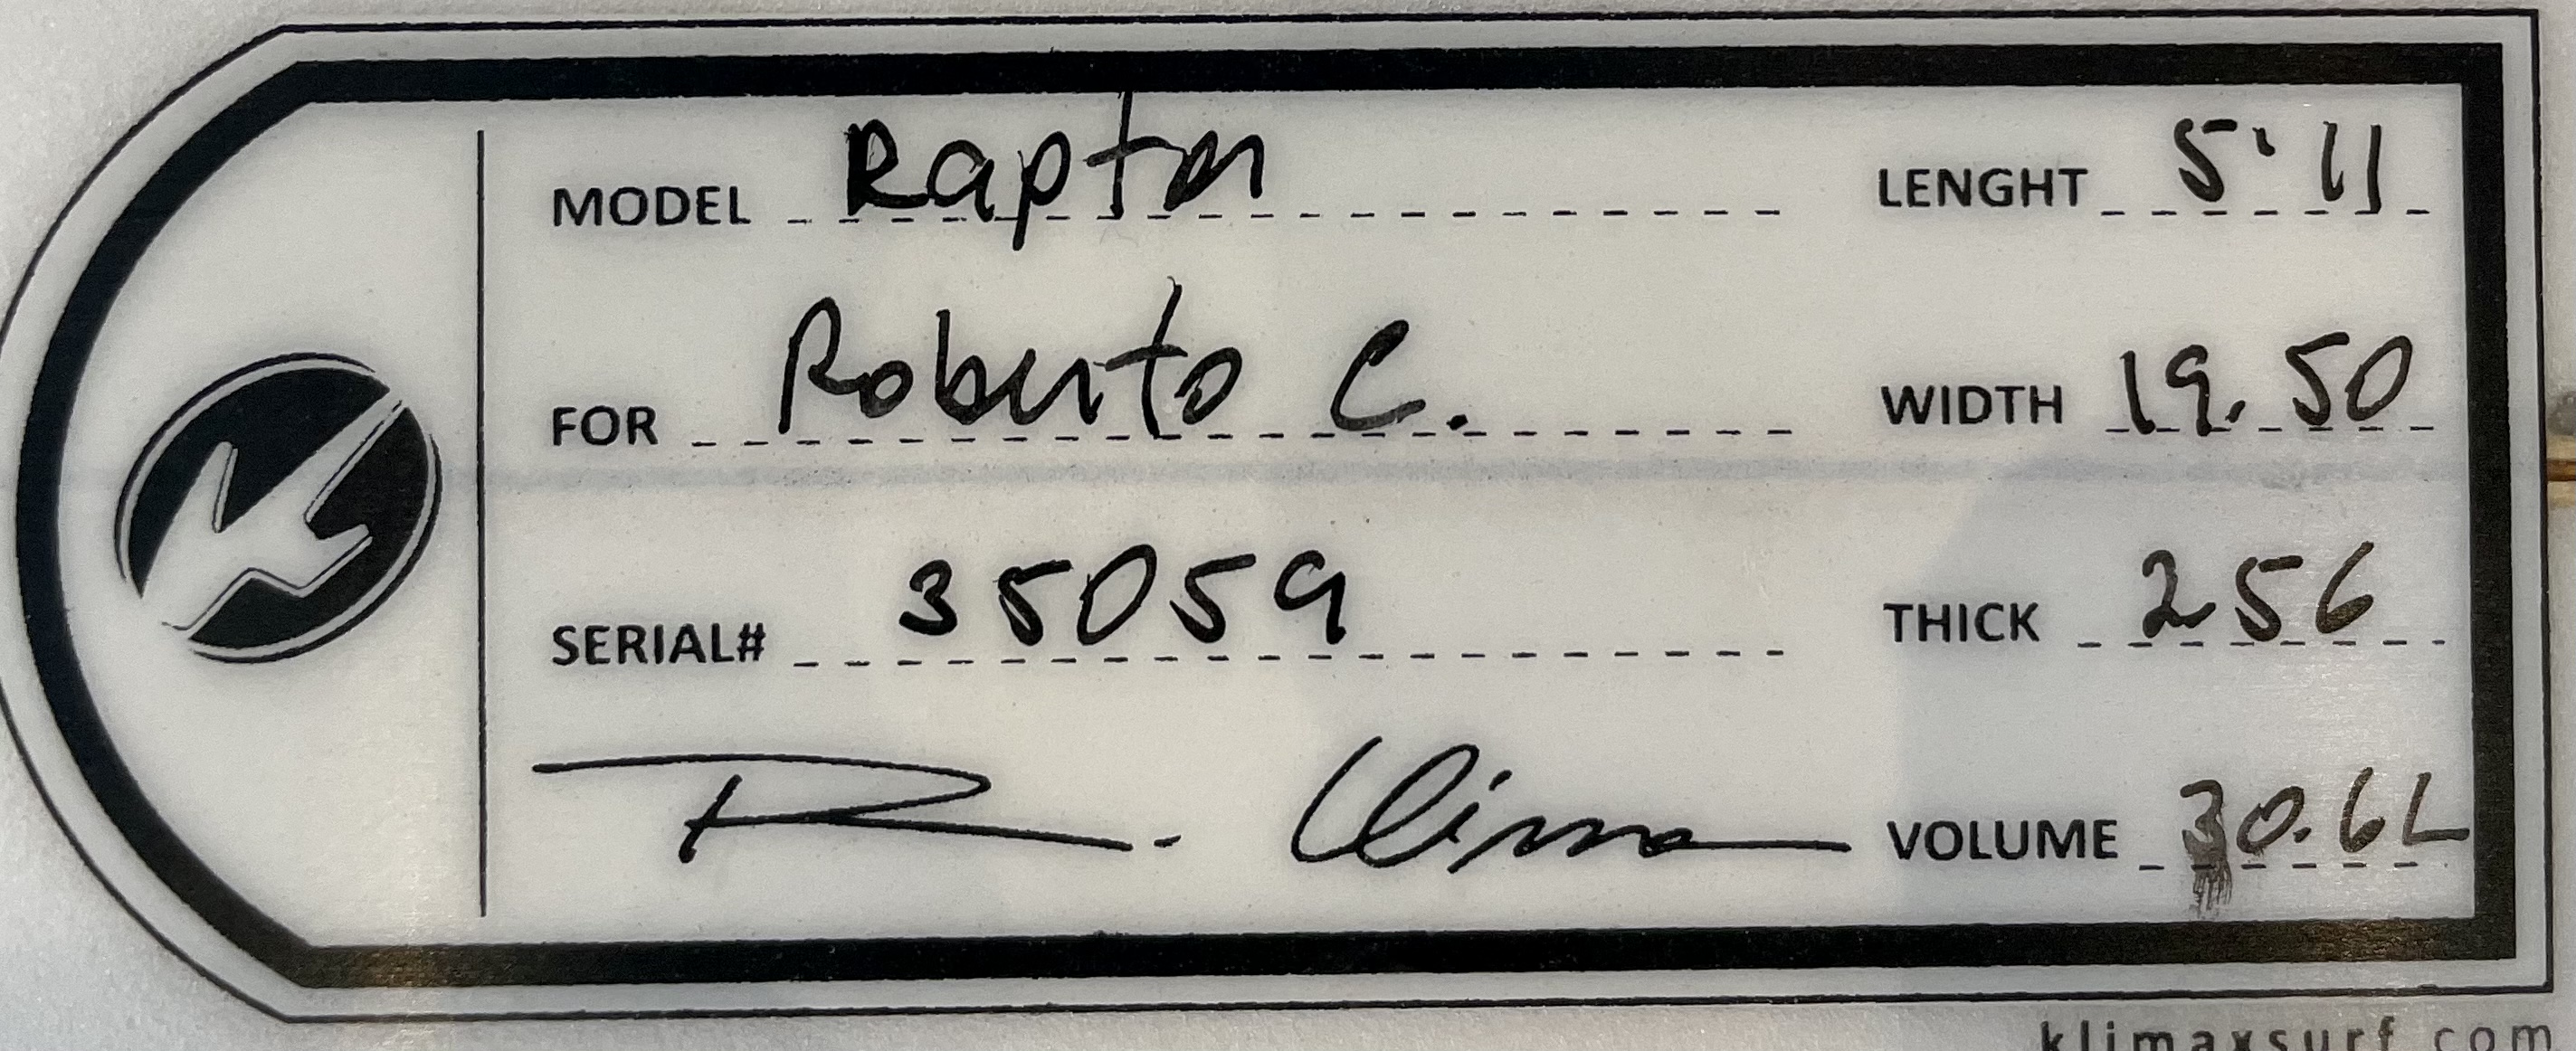 MODEL Raptor
LENGHT 5'11
FOR Roberto C.
WIDTH 19.50
SERIAL# 35059
THICK 256
R. Clima
VOLUME 30.6L
klimaxsurf.com